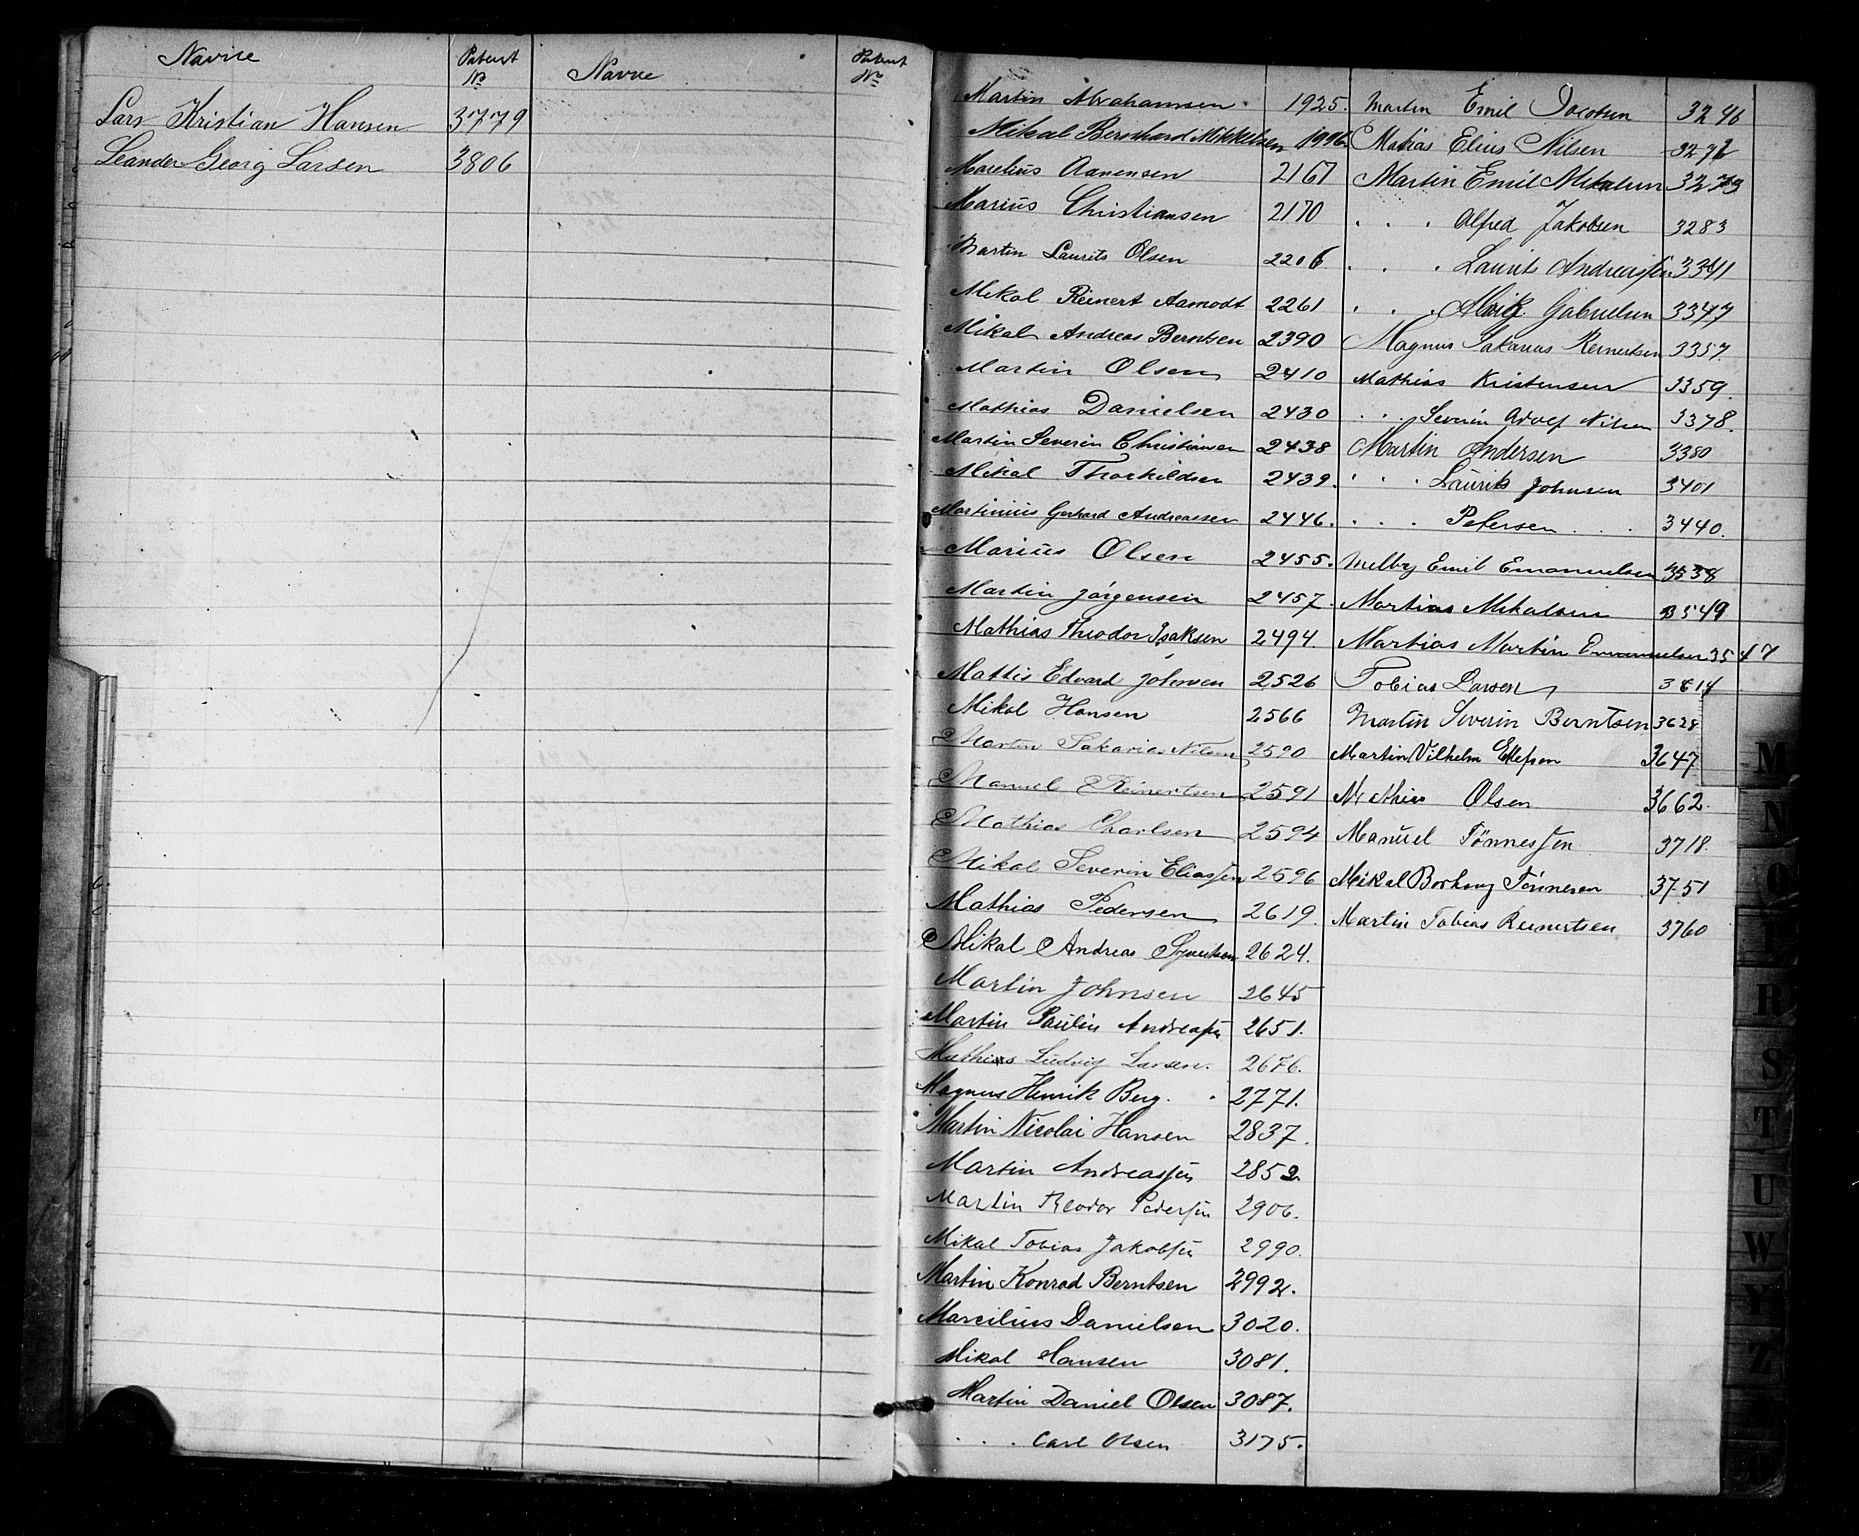 Navne Patent No Navne Patent No
Lars Kristian Hansen 3779
Leander Georg Larsen 3806
Martin Abrahamsen 1925.
Mikal Bernhard Mikkelsen 1996
Marelius Aanensen 2167
Marius Christiansen 2170
Martin Laurits Olsen 2206
Mikal Reinert Aamodt 2261
Mikal Andreas Berntsen 2390
Martin Olsen 2410
Mathias Danielsen 2430
Martin Severin Christiansen 2438
Mikal Thorkildsen 2439.
Martinius Gerhard Andreassen 2446.
Marius Olsen 2455.
Martin Jørgensen 2457.
Mathias Theodor Isaksen 2494.
Mattis Edvard Johnsen 2526
Mikal Hansen 2566
Martin Sakarias Nilsen 2590
Manuel E Reinertsen 2591
Mathias Charlsen 2594
Mikal Severin Eliassen 2596
Mathias Pedersen 2619.
Mikal Andreas 2624.
Martin Johnsen 2645
Martin Paulin Andreassen 2651.
Mathias Ludvig Larsen. 2676.
Magnus Henrik Berg. 2771.
Martin Nicolai Hansen 2837.
Martin Andreassen 2852
Martin Teodor Pedersen 2906.
Mikal Tobias Jakobsen 2990.
Martin Konrad Berntsen 2992.
Marcilius Danielsen 3020.
Mikal Hansen 3081.
Martin Daniel Olsen 3087.
. . . Carl Olsen 3175.
Martin Emil Jacobsen 3246
Mathias Elius Nilsen 3272
Martin Emil Mikalsen 3273
. . . Alfred Jakobsen 3283
. . . Laurits Andreassen 3341
. . . Gabrielsen 3347
Magnus Sakarias Reinertsen 3357.
Mathias Kristensen 3359.
. . . Severin Adolf Nilsen 3378.
Martin Andersen 3380
. . . Laurits Johnsen 3401
. . . Petersen . . . 3440.
Melby Emil Emanuelsen 3538
Martias Mikalsen 3549
Martias Martin Emanuelsen 3547
Tobias Larsen 3614
Martin Severin Berntsen 3628
Martin Vilhelm Ellefsen 3647
Mathias Olsen 3662.
Manuel Tønnessen 3718.
Mikal Borhaug Tønnesen 3751
Martin Tobias Reinertsen 3760
M
N
O
P
R
S
T
U
W
Y
Z